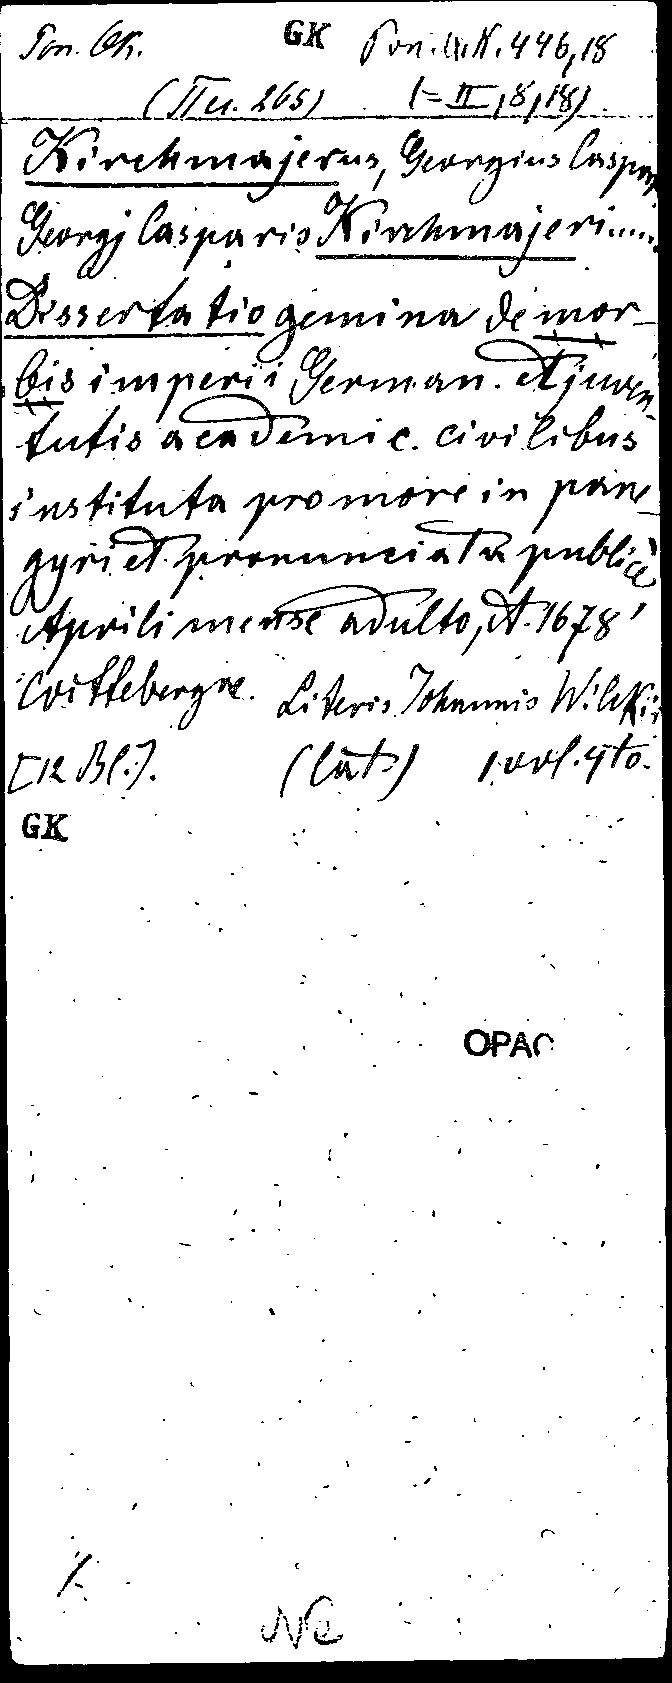 Pon. Gk. GK Pon. Q. N. 446,18
(Πu. 265) (= II, 8, 18)
Kirchmajerus, Georgius Caspar
Georgj Casparis Kirchmajeri .....
Dissertatio gemina de mor-
bis imperii German. et juven-
tutis academic. civilibus
instituta pro more in pane-
gyri et pronunciata publicè
Aprili mense adulto, A. 1678'
Wittebergae. Literis Johannis Wilckii
[12 Bl.]. (lat) 1 vol. 4to.
GK
OPAC
Ne